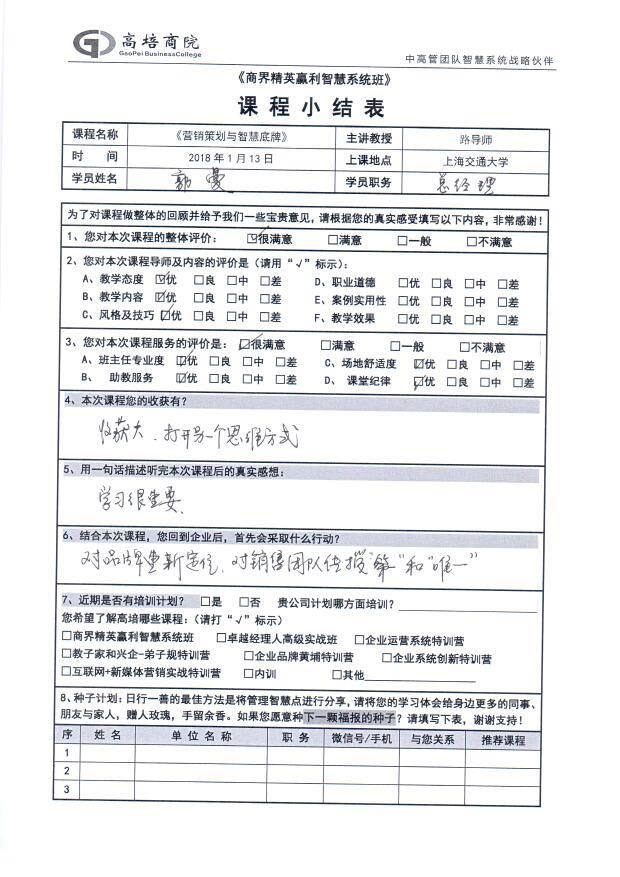 高培商院
GaoPei BusinessCollege
中高管团队智慧系统战略伙伴
《商界精英赢利智慧系统班》
课程小结表
课程名称 《营销策划与智慧底牌》 主讲教授 路导师
时 间 2018年1月13日 上课地点 上海交通大学
学员姓名 郭曼 学员职务 总经理
为了对课程做整体的回顾并给予我们一些宝贵意见,请根据您的真实感受填写以下内容,非常感谢!
1、您对本次课程的整体评价: ☑很满意 □满意 □一般 □不满意
2、您对本次课程导师及内容的评价是(请用“√”标示):
A、教学态度 ☑优 □良 □中 □差 D、职业道德 □优 □良 □中 □差
B、教学内容 ☑优 □良 □中 □差 E、案例实用性 □优 □良 □中 □差
C、风格及技巧 ☑优 □良 □中 □差 F、教学效果 □优 □良 □中 □差
3、您对本次课程服务的评价是: ☑很满意 □满意 □一般 □不满意
A、班主任专业度 ☑优 □良 □中 □差 C、场地舒适度 ☑优 □良 □中 □差
B、 助教服务 ☑优 □良 □中 □差 D、 课堂纪律 ☑优 □良 □中 □差
4、本次课程您的收获有?
收获大、打开另一个思维方式
5、用一句话描述听完本次课程后的真实感想:
学习很重要、
6、结合本次课程,您回到企业后,首先会采取什么行动?
对品牌重新定位、对销售团队传授“第一”和“唯一”
7、近期是否有培训计划? □是 □否 贵公司计划哪方面培训?
您希望了解高培哪些课程:(请打“√”标示)
□商界精英赢利智慧系统班 □卓越经理人高级实战班 □企业运营系统特训营
□教子家和兴企-弟子规特训营 □企业品牌黄埔特训营 □企业系统创新特训营
□互联网+新媒体营销实战特训营 □内训 □其他
8、种子计划:日行一善的最佳方法是将管理智慧点进行分享,请将您的学习体会给身边更多的同事、
朋友与家人,赠人玫瑰,手留余香。如果您愿意种下一颗福报的种子?请填写下表,谢谢支持!
序 姓名 单位名称 职务 微信号/手机 与您关系 推荐课程
1
2
3